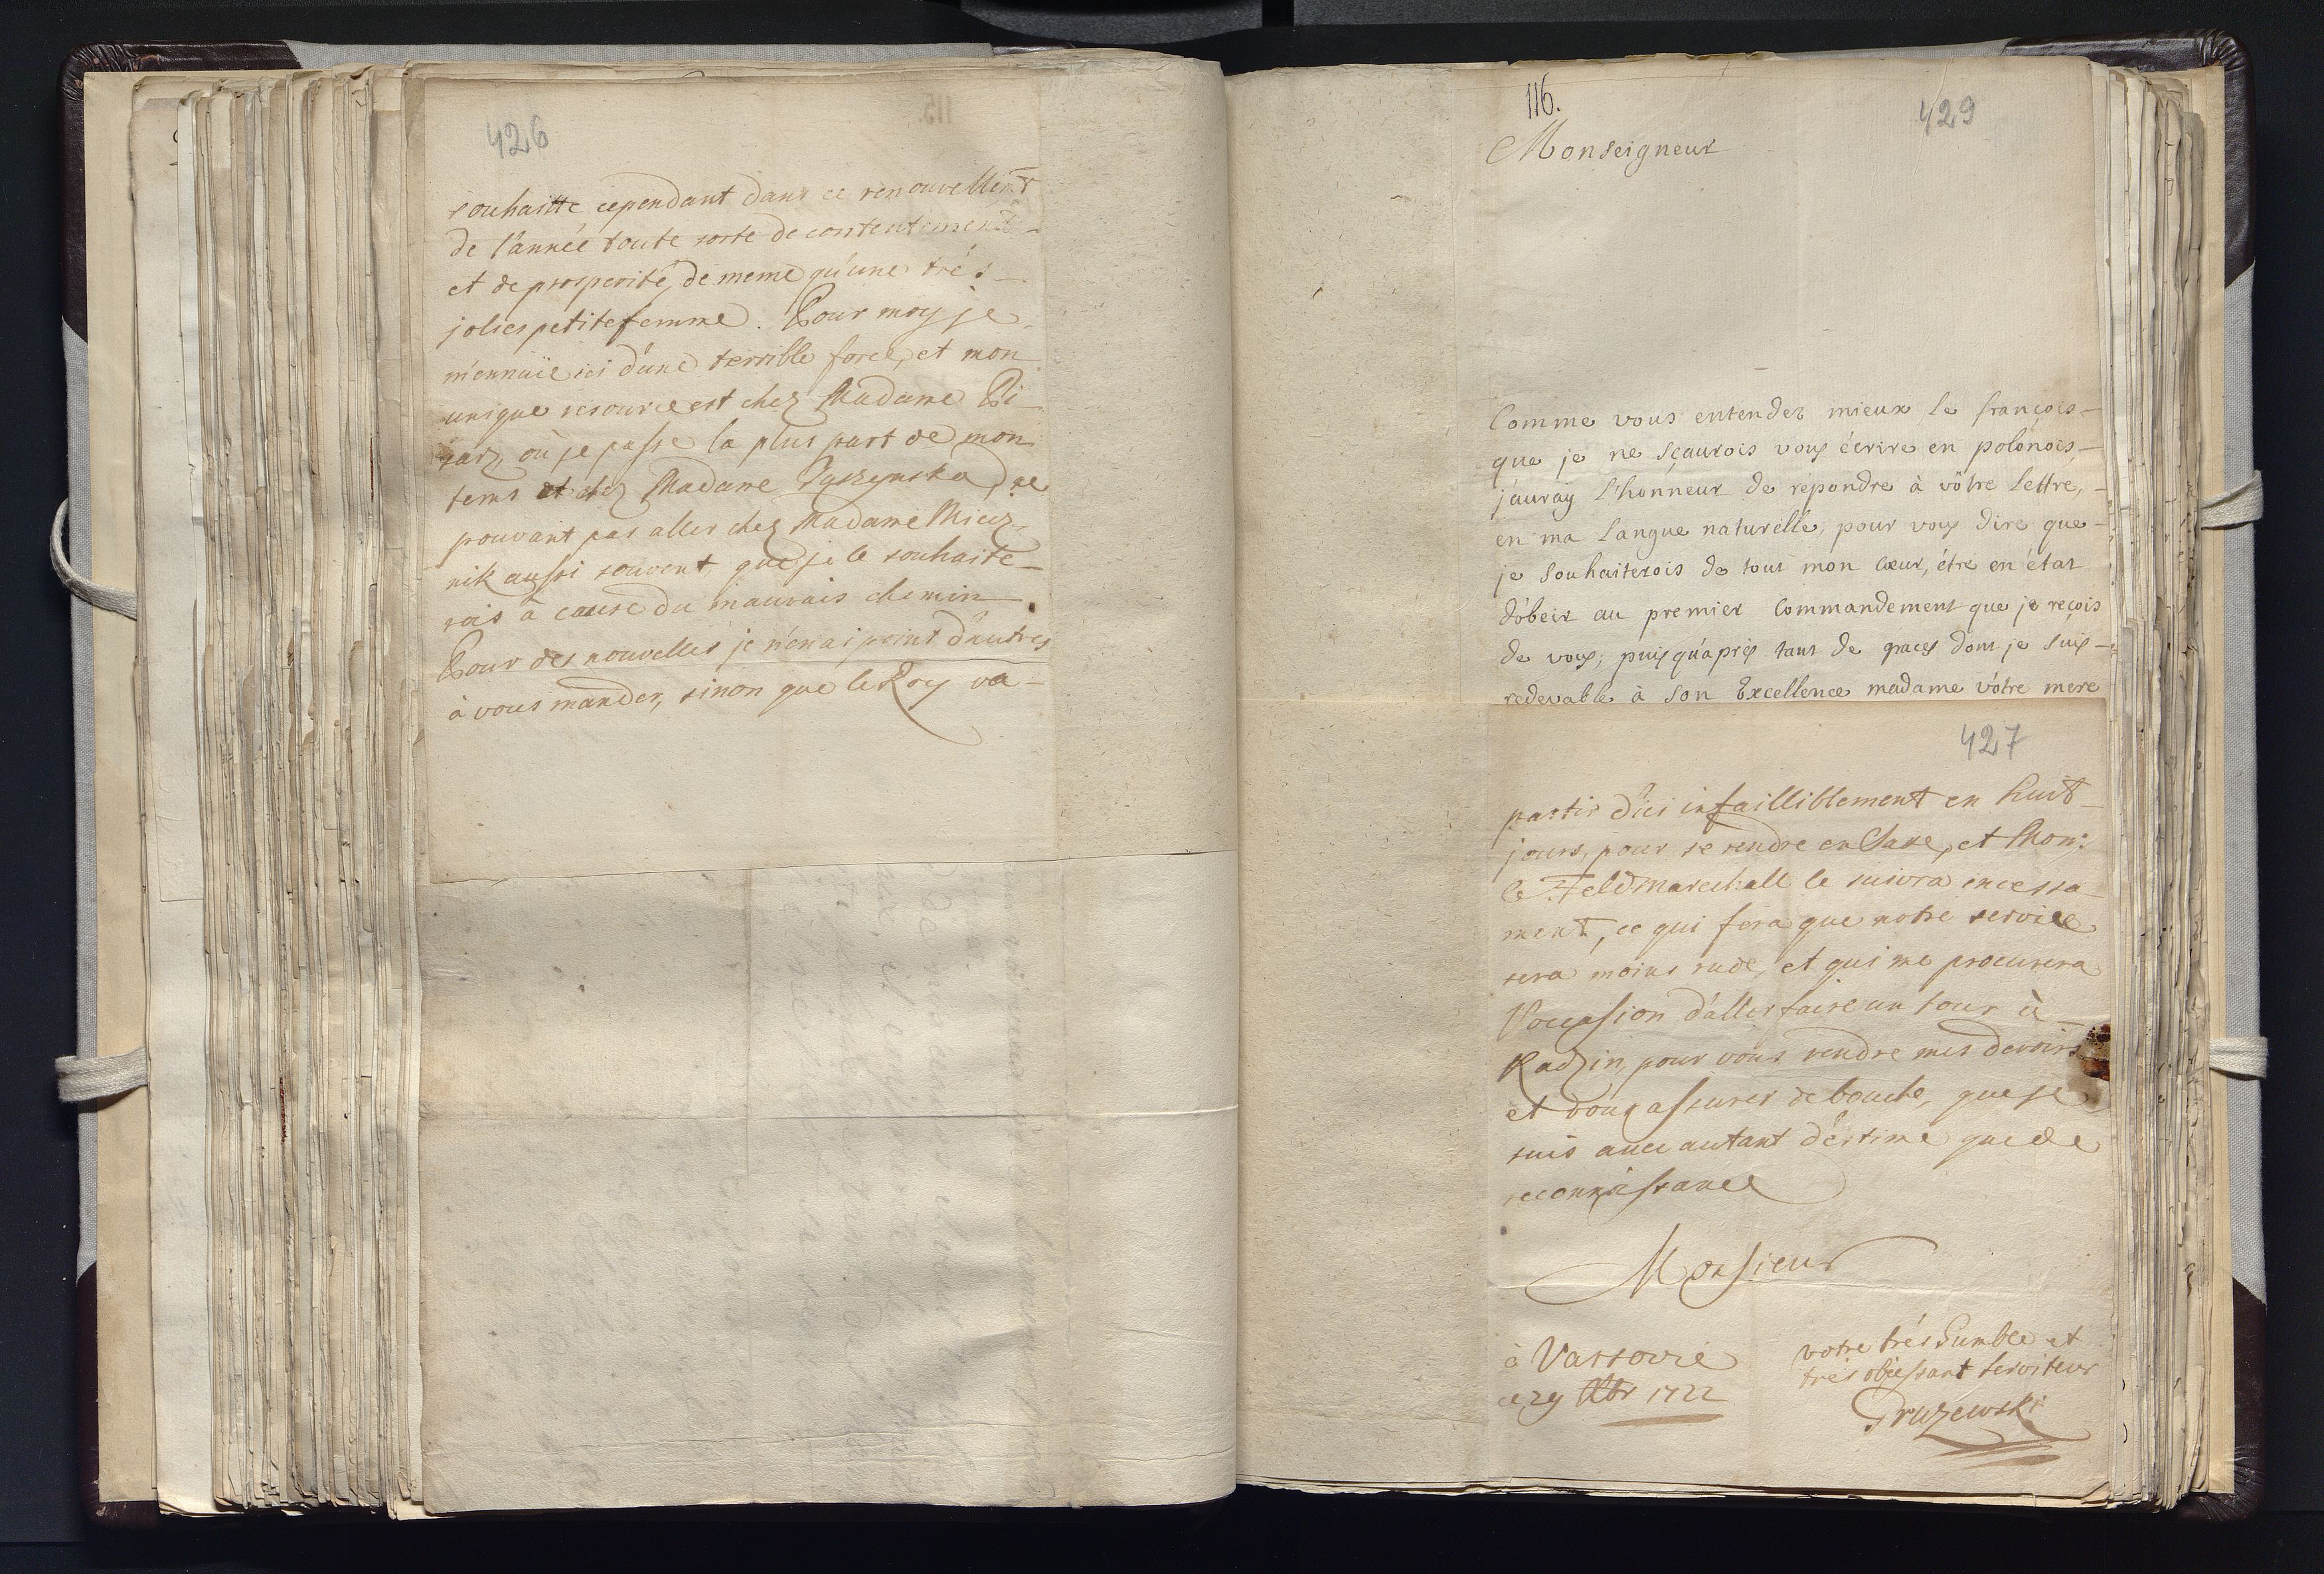 426
souhaitte cependant dans ce renouvellem̄t
de l'année toute sorte de contentement
et de prosperité, de meme qu'une tré s
jolies petite femme. Pour moy je
m'ennuïe ici d'une terrible force, et mon
unique resource est chez Madame Bi
sarz, où je passe la plus part de mon
tems et chez Madame Tyszynska, ne
pouvant pas aller chez Madame Miecz
nik aussi souvent, que je le souhaite
rois à cause du mauvais chemin.
Pour des nouvelles je n'en ai point d'autres
à vous mander, sinon que le Roy va
116.
429
Monseigneur
Comme vous entendez mieux le françois
que je ne sçaurois vous écrire en polonois,
j'auray l'honneur de repondre à vôtre lettre,
en ma langue naturélle, pour vous dire que
je souhaiterois de tout mon cœur, étre en état
d'obeir au premier Commandement que je reçois
de vous, puis qu'aprés tant de graces dont je suis
redevable à son Excellence madame vôtre mere
427
partir d'ici infailliblement en huit
jours, pour se rendre en Saxe, et Mon:
le Feldmarechall le suivra incessa
ment, ce qui fera que notre service
sera moins rude, et qui me procurera
l'occasion d'aller faire un tour à
Radzin, pour vous rendre mes devoirs
et vous assurer de bouche, que je
suis avec autant d'estime que de
reconnoissance
Monsieur
à Varsovie
ce 29 Xbr 1722
votre trés humble et
trés obeissant serviteur
Pruzewski